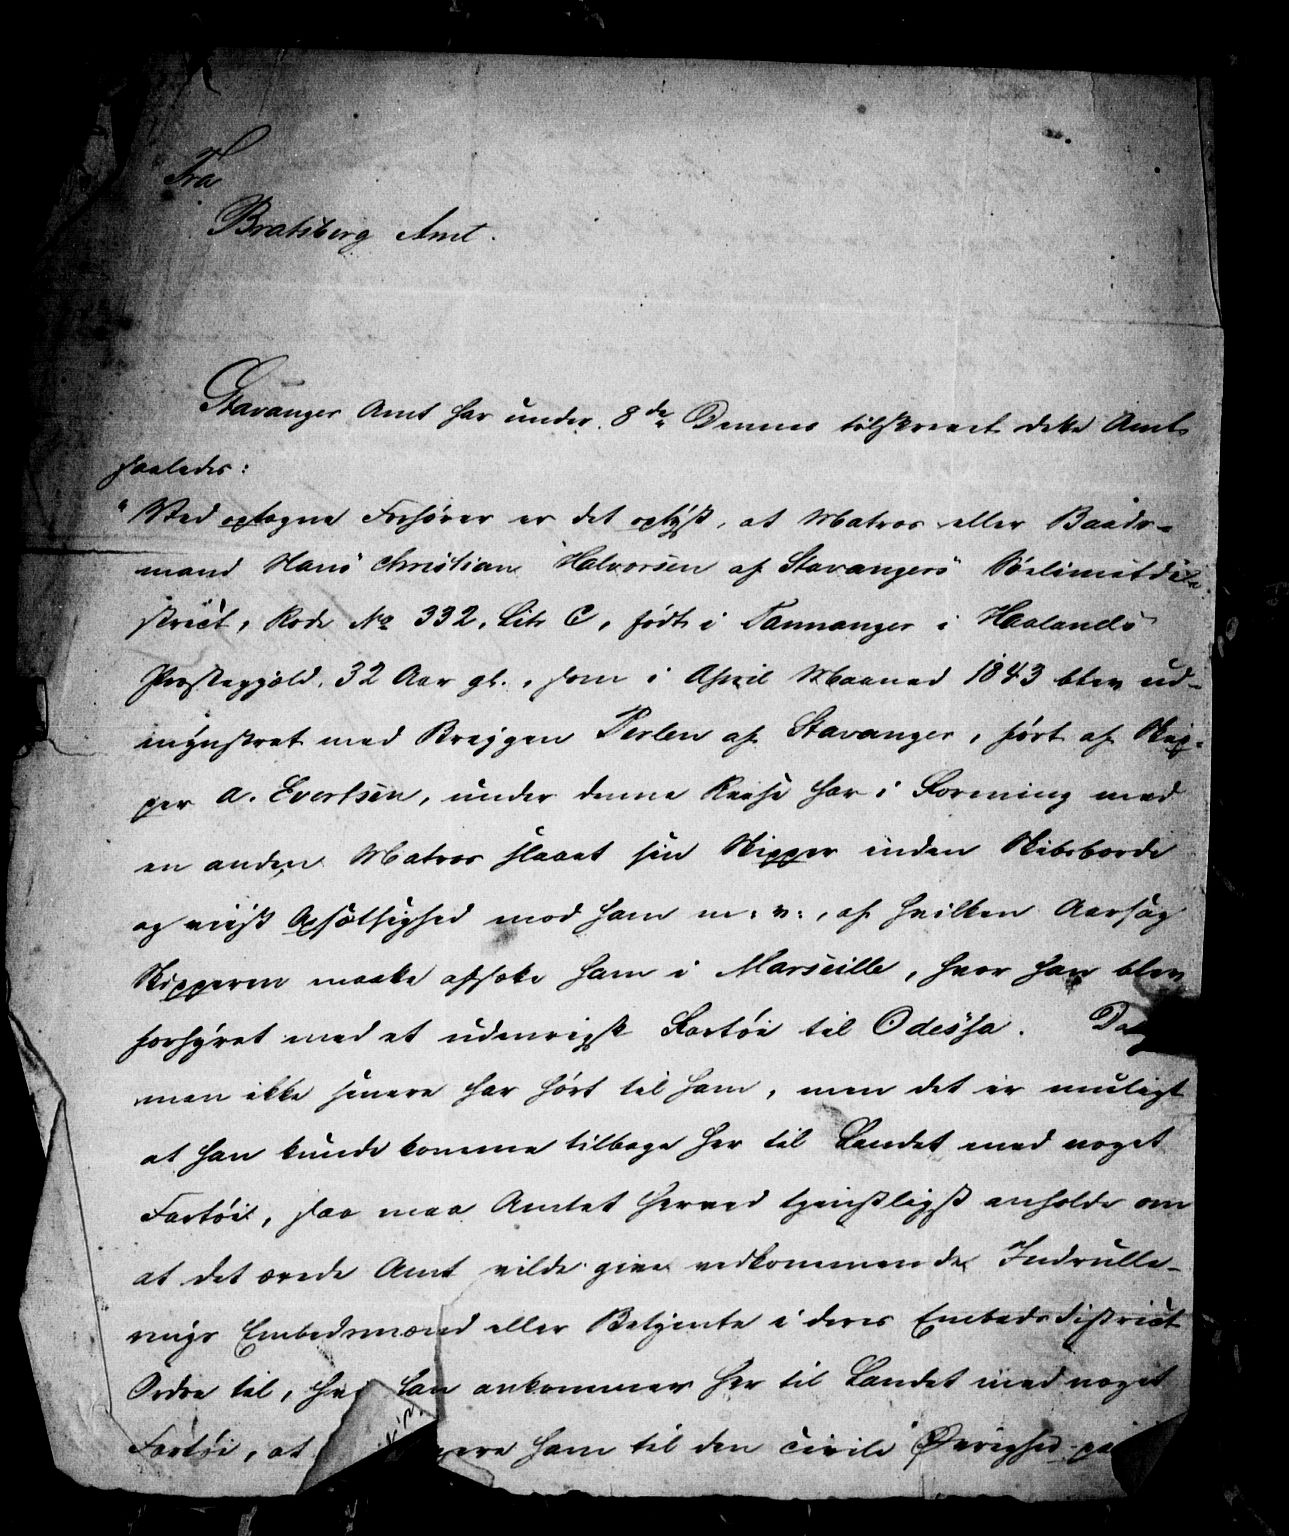 Fra
Bratsberg Amt.
Stavanger Amt har under 8de Dennes tilskrevet dette Amt
saaledes:
"Ved optagne Forhører er det oplyst, at Matros eller Baads-
mand Hans Christian Halvorsen af Stavangers Sølimitdi-
strict, Rode No 332, Litr C, født i Tannanger i Haalands
Præstegjæld, 32 Aar gl., som i April Maaned 1843 blev ud-
mynstret med Briggen Perlen af Stavanger, ført af Skip-
per A. Evertsen, under denne Reise har i Forening med
en anden Matros slaaet sin Skipper inden Skibsborde
og viist Opsætsighed mod ham m: v:, af hvilken Aarsag
Skipperen maatte afsætte ham i Marseille, hvor han blev
forhyret med et udenrigsk Fartøi til Odessa.
man ikke senere har hørt til ham, men det er muligt
at han kunde komme tilbage her til Landet med noget
Fartøi, saa maa Amtet herved tjenstligst anholde om
at det ærede Amt vilde give vedkommende Indrulle-
rings Embedsmænd eller Betjente i deres Embedsdistrict
Ordre til, han ankommer her til Landet med noget
Fartøi, at ham til den civile Øvrighed paa